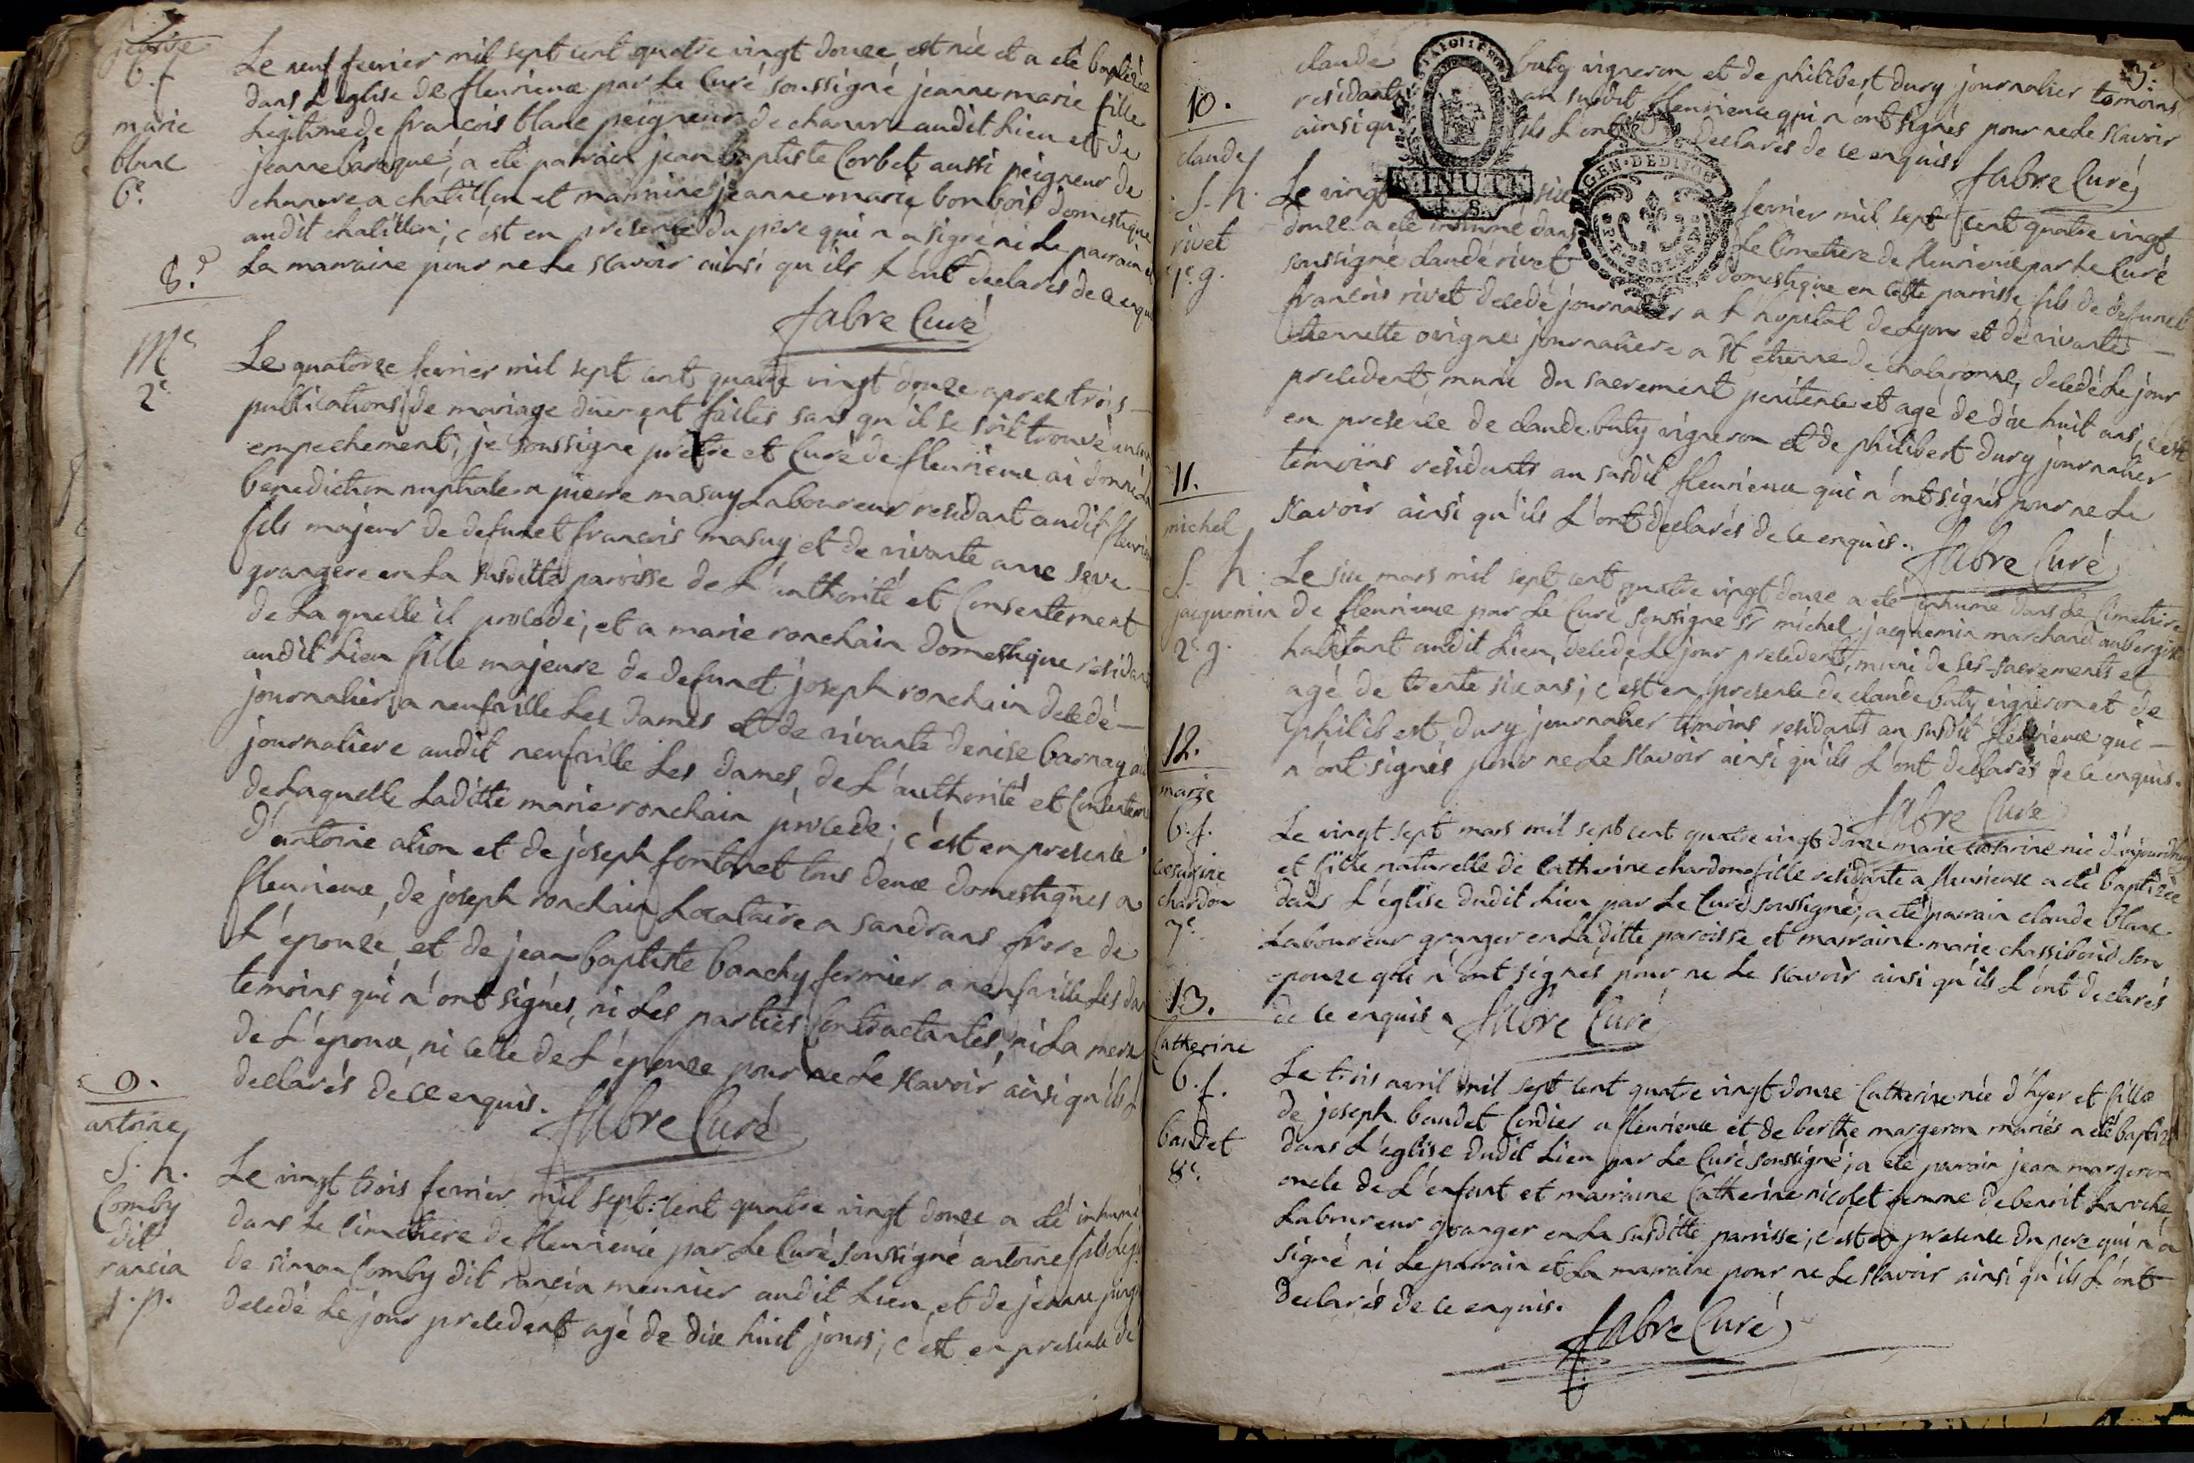 jeanne
b. f.
marie
blanc
6.e
Le neuf fevrier mil sept cent quatre vingt douze, est née et a eté baptisée
dans L'église de fleurieux par Le Curé soussigné jeanne marie fille
Legitime de francois blanc peigneur de chanvre audit Lieu et de
jeanne baraque, a eté parrain jean baptiste Corbet aussi peigneur de
chanvre a chatillon et marraine jeanne marie bonbois domestique
audit chatillon; c'est en presence du pere qui n'a signé ni Le parrain
La marraine pour ne Le scavoir ainsi qu'ils L'ont declarés de ce enquis
fabre Curé
8.
M.e
2.e
Le quatorze fevrier mil sept cent quatre vingt douze apres trois
publications de mariage duement faites sans qu'il se soit trouvé aucun
empechement, je soussigné prêtre et Curé de fleurieux ai donné La
benediction nuptiale a pierre masuy Laboureur residant audit fleurieux
fils majeur de defunct francois masuy et de vivante anne seve
grangere en La susditte paroisse de L'authorité et Consentement
de La quelle il procede; et a marie ronchain domestique residante
audit Lieu fille majeure de defunct joseph ronchain decedé
journalier a neufville Les dames et de vivante denise barnay
journaliere audit neufville Les dames, de L'authorité et Consentement
de Laquelle Laditte marie ronchain procede; c'est en presence
d'antoine alion et de joseph fontanet tous deux domestiques a
fleurieux, de joseph ronchain Locataire a sandrans frere de
L'épouze, et de jean baptiste banchy fermier a neufville Les dames
temoins qui n'ont signés, ni Les parties Contractantes, ni La mere
de L'epoux, ni celle de L'épouze pour ne Le scavoir ainsi qu'ils L'
declarés de ce enquis.
fabre Curé
9.
antoine
S. h.
Comby
dit
rancia
1. p.
Le vingt trois fevrier mil sept cent quatre vingt douze a eté inhumé
dans Le cimetiere de fleurieux par Le Curé soussigné antoine fils Legit
de simon Comby dit rancia meunier audit Lieu, et de jeanne
decedé Le jour precedent agé de dix huit jours; c'est en presence de
3.e
claude buty vigneron et de philibert dury journalier temoins
residants au susdit fleurieux qui n'ont signés pour ne Le scavoir
ainsi qu'ils L'ont declarés de ce enquis.
fabre Curé
MINUTE
GEN. DE DIJON
10.
claude
S. h.
rivet
1.e g.
Le vingt six fevrier mil sept cent quatre vingt
douze a eté inhumé dans Le Cimetiere de fleurieux par Le Curé
soussigné claude rivet domestique en cette paroisse, fils de defunct
francois rivet decedé journalier a L'hopital de Lyon et de vivante
etiennette ovigne journaliere a St etienne de chalaronne, decedé Le jour
precedent muni du sacrement penitence et agé de dix huit ans, c'est
en presence de claude buty vigneron et de philibert dury journalier
temoins residants au susdit fleurieux qui n'ont signés pour ne Le
scavoir ainsi qu'ils L'ont declarés de ce enquis.
fabre Curé
11.
michel
S. h.
jacquemin
2.e g.
Le six mars mil sept cent quatre vingt douze a eté inhumé dans Le Cimetiere
de fleurieux par Le Curé soussigné Sr michel jacquemin marchand aubergiste
habitant audit Lieu, decedé Le jour precedent, muni de ses sacrements et
agé de trente six ans; c'est en presence de claude buty vigneron et de
philibert dury journalier temoins residants au susdit fleurieux qui
n'ont signés pour ne Le scavoir ainsi qu'ils L'ont declarés de ce enquis.
fabre Curé
12.
marie
b. f.
cesarine
chardon
7.e
Le vingt sept mars mil sept cent quatre vingt douze marie cesarine née d'aujourd'huy
et fille naturelle de Catherine chardon fille residante a fleurieux a eté baptisée
dans L'église dudit Lieu par Le Curé soussigné; a eté parrain claude blanc
Laboureur granger en La ditte paroisse et marraine marie chassiboud son
epouze qui n'ont signés pour ne Le scavoir ainsi qu'ils L'ont declarés
de ce enquis. fabre Curé
13.
Catherine
b. f.
baudet
8.e
Le trois avril mil sept cent quatre vingt douze Catherine née d'hyer et fille
de joseph baudet Cordier a fleurieux et de berthe margeron mariés a eté baptisée
dans L'église dudit Lieu par Le Curé soussigné; a eté parrain jean margeron
oncle de L'enfant et marraine Catherine nicolet femme de benoit Laroche
Laboureur granger en La susditte paroisse; c'est en presence du pere qui n'a
signé ni Le parrain et La marraine pour ne Le scavoir ainsi qu'ils L'ont
declarés de ce enquis.
fabre Curé